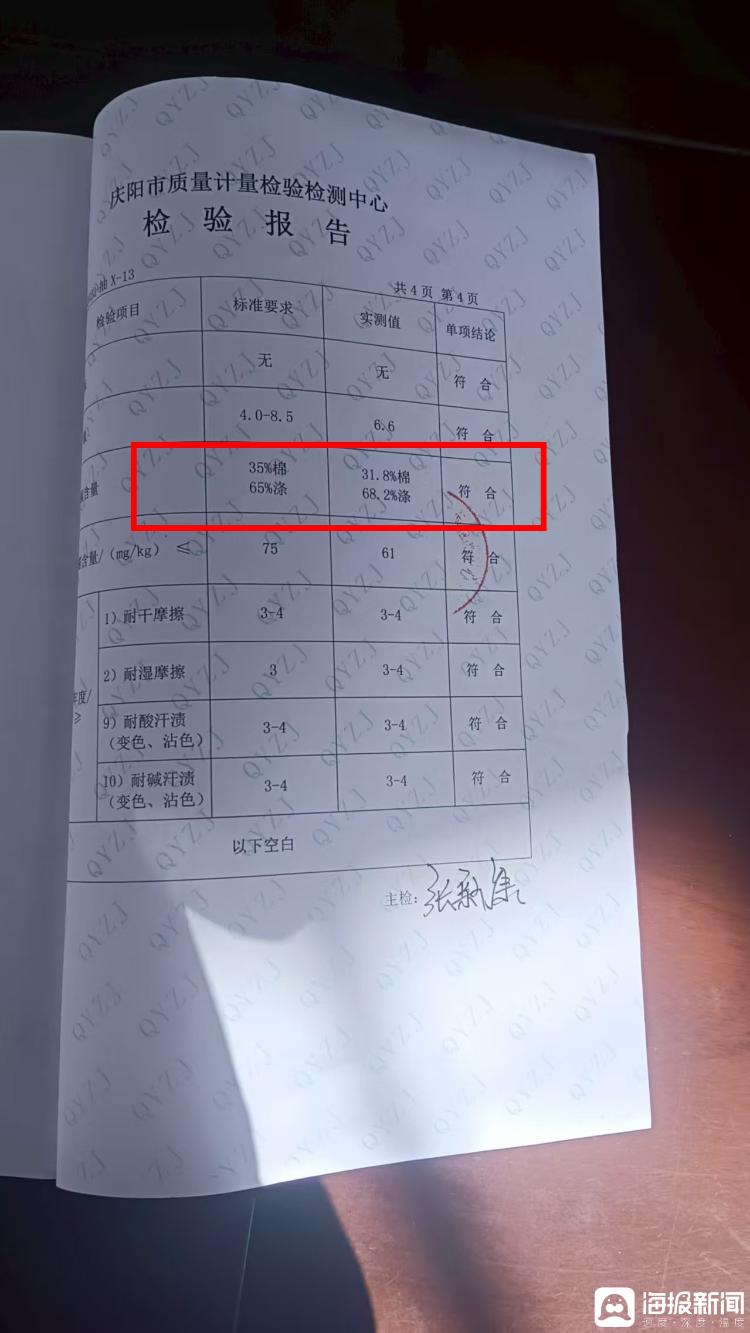 庆阳市质量计量检验检测中心
检 验 报 告
抽 X-13
共 4 页 第 4 页
检验项目 标准要求 实测值 单项结论
无 无 符 合
4.0-8.5 6.6 符 合
含量 35%棉 31.8%棉 符 合
65%涤 68.2%涤
含量/(mg/kg) ≤ 75 61 符 合
度/
≥
1)耐干摩擦 3-4 3-4 符 合
2)耐湿摩擦 3 3-4 符 合
9)耐酸汗渍 3-4 3-4 符 合
(变色、沾色)
10)耐碱汗渍 3-4 3-4 符 合
(变色、沾色)
以下空白
主检:
QYZJ
海报新闻
速度·深度·温度